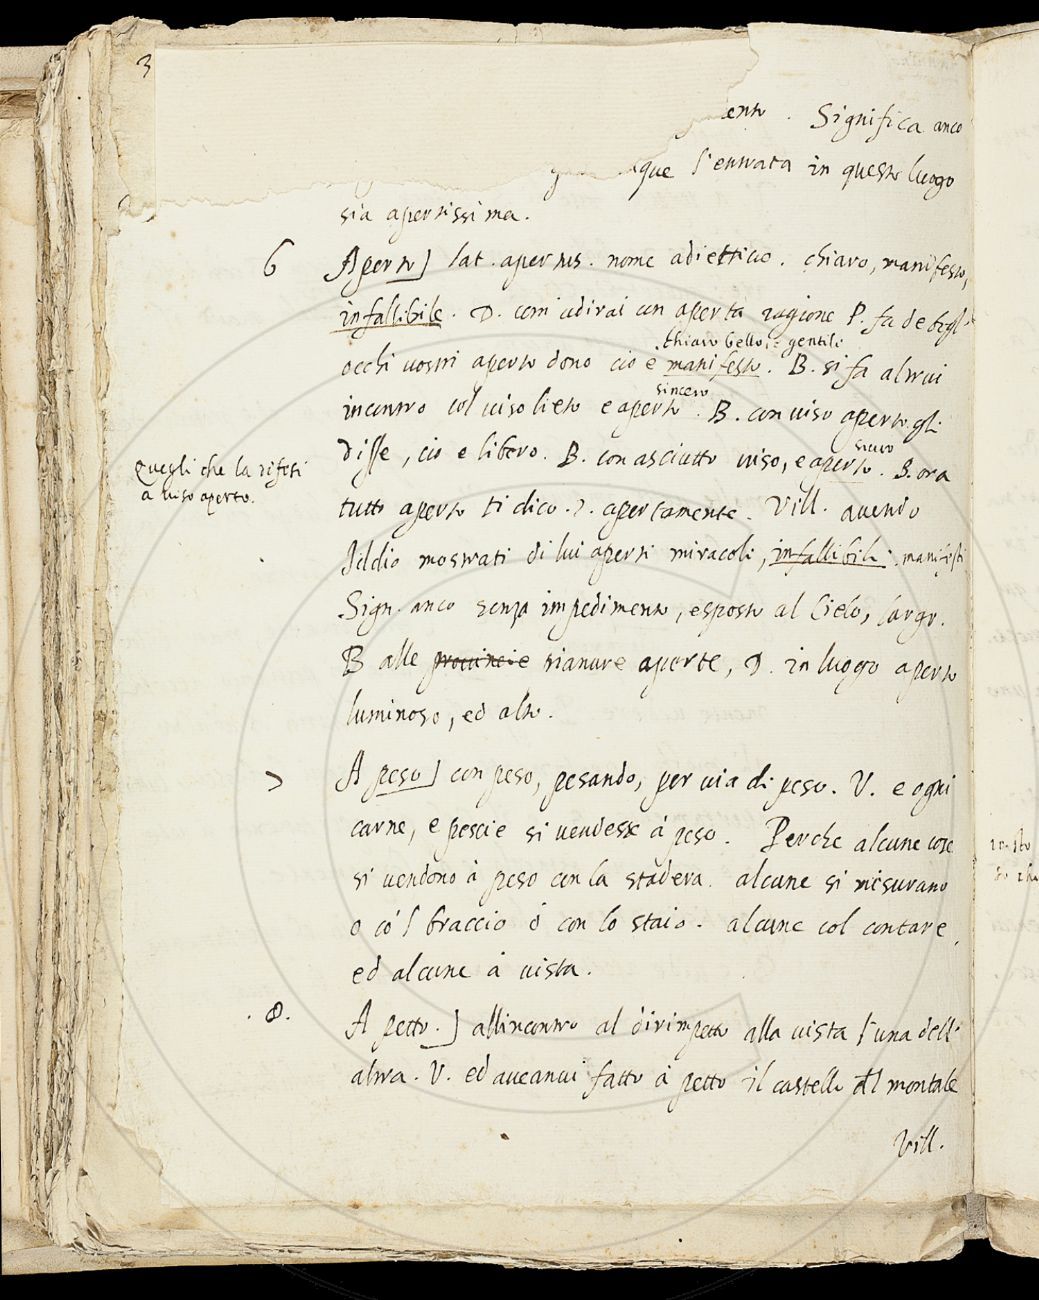 3
ento . Significa anco
que l'entrata in questo luogo
sia apertissima.
6 Aperto] lat. apertus. nome adiettiuo. chiaro, manifesto,
infallibile. D. com udirai con aperta ragione P. fa de begl'
chiaro bello, e gentile
occhi uostri aperto dono cio è manifesto. B. si fa altrui
sincero
incontro col uiso lieto e aperto. B. con uiso aperto gli
disse, cio e libero. B. con asciutto uiso, e aperto. B. ora
sicuro
Quegli che la difesi
a uiso aperto.
tutto aperto ti dico. apertamente. Vill. auendo
Iddio mostrati di lui aperti miracoli, infallibili, manifesti
Sign. anco senza impedimento, esposto al Cielo, largo.
B alle prouincie pianure aperte, D. in luogo aperto
luminoso, ed alto.
7 A peso] con peso, pesando, per uia di peso. V. e ogni
carne, e pescie si uendesse à peso. Perche alcune cose
si uendono à peso con la stadera. alcune si misurano
o co'l braccio ò con lo staio. alcune col contare,
ed alcune à uista.
.8. A petto.] allincontro al dirimpetto alla uista l'una dell'
altra. V. ed aueanui fatto à petto il castello al montale
Vill.